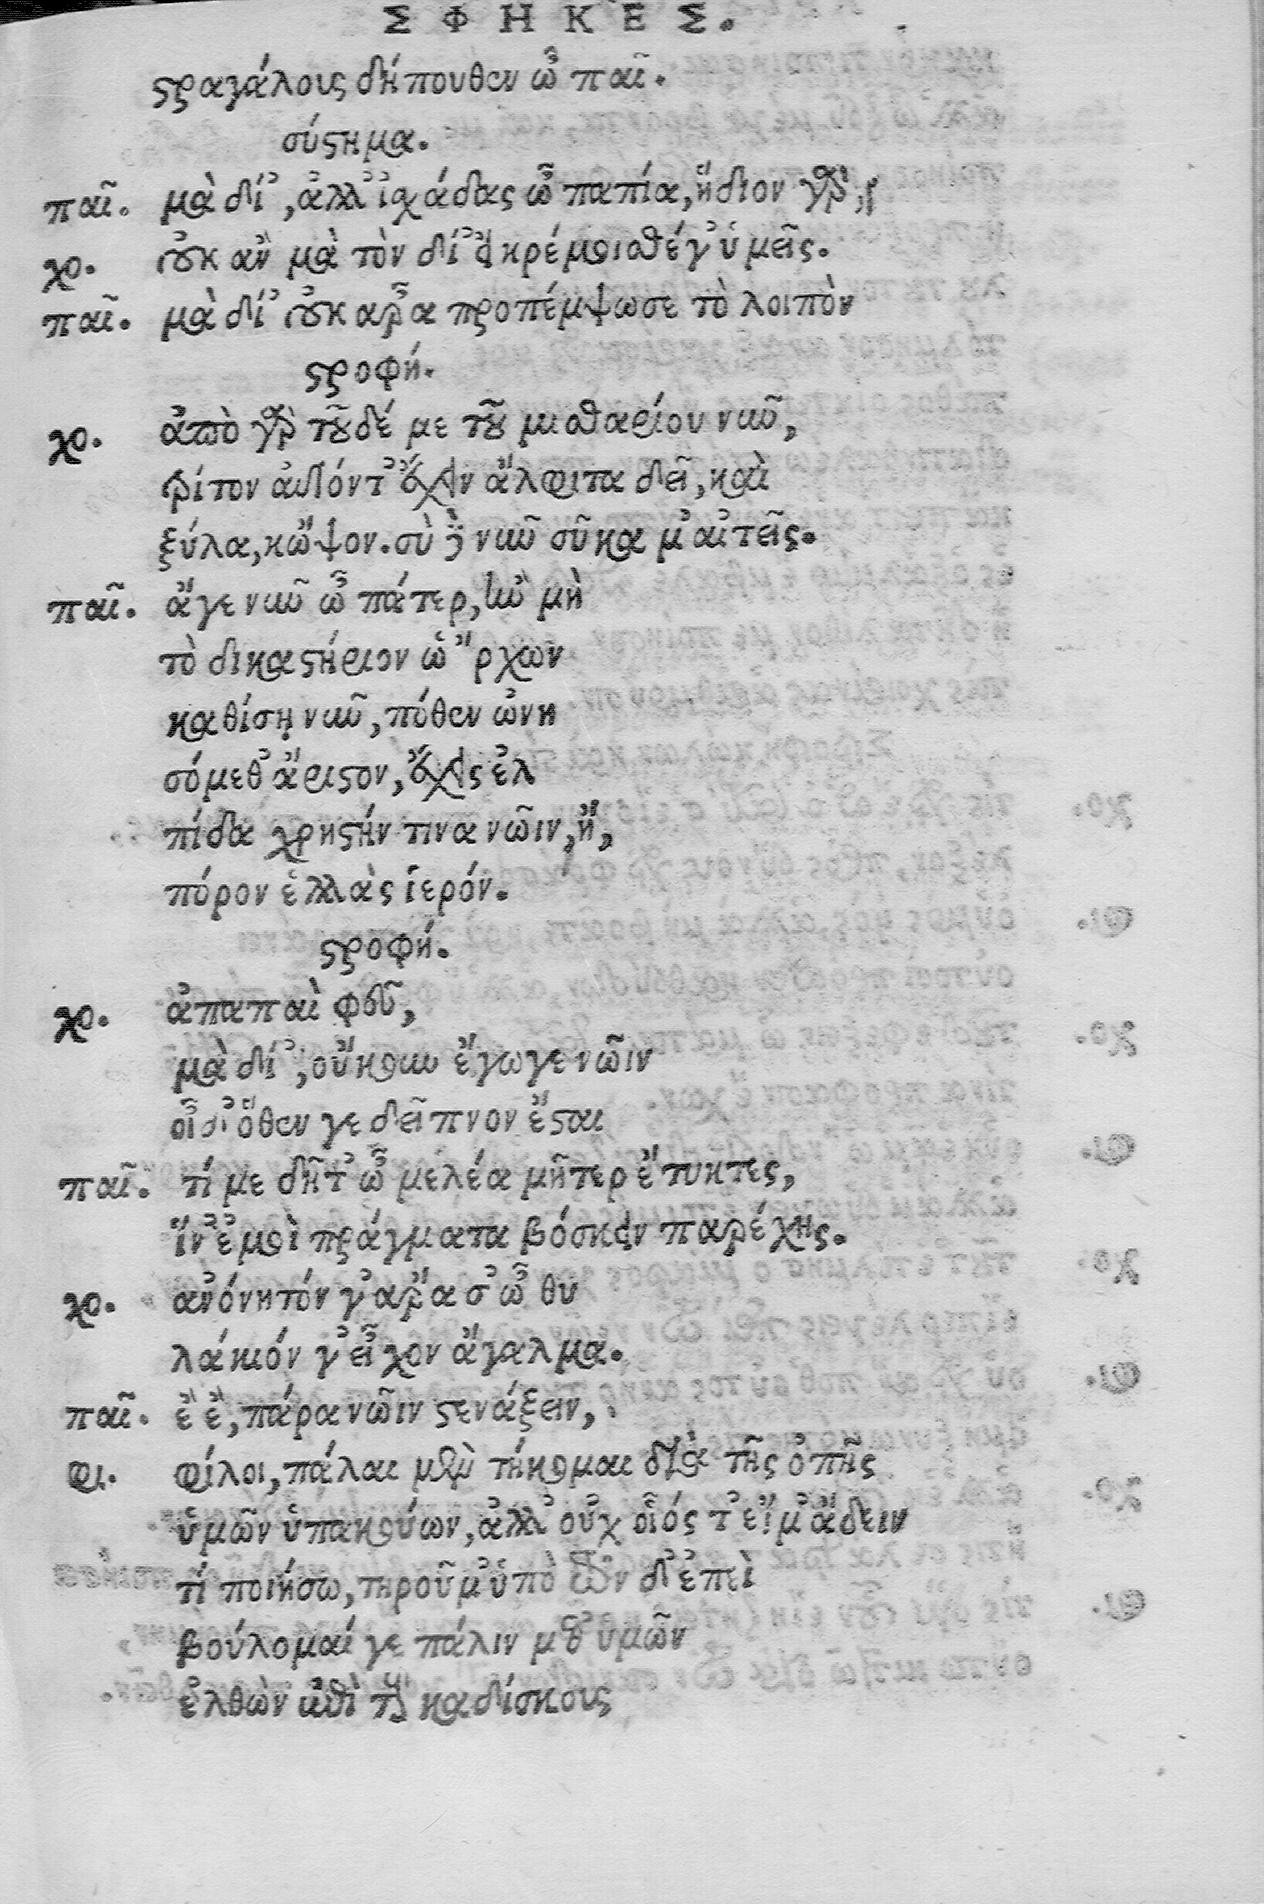 ΣΦΗΚΕΣ.
στραγάλους δήπουθεν ὦ παῖ.
σύστημα.
παῖ. μὰ δί', ἀλλ' ἰσχάδας ὦ παπία, ἥδιον γὰρ,
χο. οὐκ ἂν μὰ τὸν δί' εἰ κρέμοισθέ γ' ὑμεῖς.
παῖ. μὰ δί' οὐκ ἄρα προπέμψω σε τὸ λοιπὸν
στροφή.
χο. ἀπὸ γὰρ τοῦδέ με τοῦ μισθαρίου νῦν,
τρίτον αὐτόντ' ἔχειν ἄλφιτα δεῖ, καὶ
ξύλα, κὤψον. σὺ δὲ νῦν σῦκα μ' αἰτεῖς.
παῖ. ἄγε νῦν ὦ πάτερ, ἢν μὴ
τὸ δικαστήριον ὡ ῎ρχων
καθίσῃ νῦν, πόθεν ὠνη
σόμεθ' ἄριστον, ἔχεις ἐλ
πίδα χρηστήν τινα νῶιν, ἤ,
πόρον ἑλλὰς ἱερόν.
στροφή.
χο. ἀπαπαὶ φεῦ,
μὰ δί', οὔκουν ἔγωγε νῶιν
οἶδ' ὅθεν γε δεῖπνον ἔσται
παῖ. τί με δῆτ' ὦ μελέα μῆτερ ἔτικτες,
ἵν' ἐμοὶ πράγματα βόσκειν παρέχῃς.
χο. ἀνόνητόν γ' ἄρα σ' ὦ θυ
λάκιόν γ' εἶχον ἄγαλμα.
παῖ. ἒ ἒ, πάρα νῶιν στενάζειν,
φι. φίλοι, πάλαι μὲν τήκομαι διὰ τῆς ὀπῆς
ὑμῶν ὑπακούων, ἀλλ' οὐχ οἷός τ' εἴμ' ἄδειν
τί ποιήσω, τηροῦμ' ὑπὸ τῶν δ' ἐπεὶ
βούλομαί γε πάλιν μεθ' ὑμῶν
ἐλθὼν ἐπὶ τοὺς καδίσκους